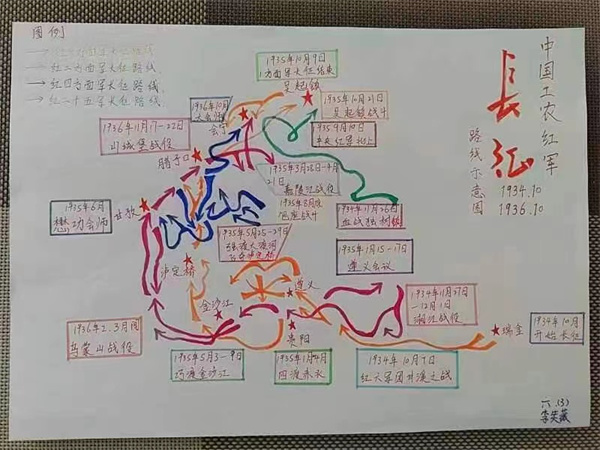 图例
红一方面军长征路线
红二方面军长征路线
红四方面军长征路线
红二十五军长征路线
中国工农红军
長征
路线示意图
1934.10
1936.10
1935年10月9日
1方面军长征结束
吴起镇
1936年10月
会宁
1935年10月21日
吴起镇战斗
1935年9月10日
1936年11月17-22日
山城堡战役
腊子口
1935年3月28日-4月
21日
嘉陵江战役
1935年8月
1934年11月26日
血战独树镇
1935年6月
懋功会师
1935年5月25-29日
强渡大渡河
1935年1月15-17日
遵义会议
泸定桥
金沙江
遵义
1934年11月27日
-12月1日
湘江战役
瑞金
1934年10月
开始长征
1936年2.3月间
乌蒙山战役
贵阳
1935年5月3-9日
巧渡金沙江
1935年1月4月
四渡赤水
1934年10月7日
六.(3)